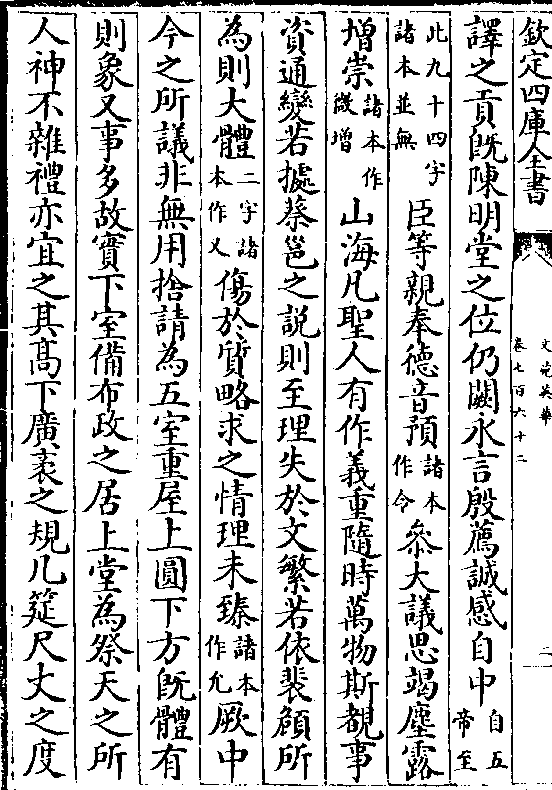 欽定四庫全書
文苑英華
卷七百六十二
二
譯之貢既陳明堂之位仍闕永言殷薦誠感自中自五帝至
此九十四字諸本並無臣等親奉德音預諸本作令叅大議思竭塵露
增崇諸本作微增山海凡聖人有作義重隨時萬物斯覩事
資通變若據蔡邕之說則至理失於文繁若依裴頠所
為則大體二字諸本作又傷於質略求之情理未臻諸本作允厥中
今之所議非無用捨請為五室重屋上圓下方既體有
則象又事多故實下室備布政之居上堂為祭天之所
人神不雜禮亦宜之其髙下廣袤之規几筵尺丈之度